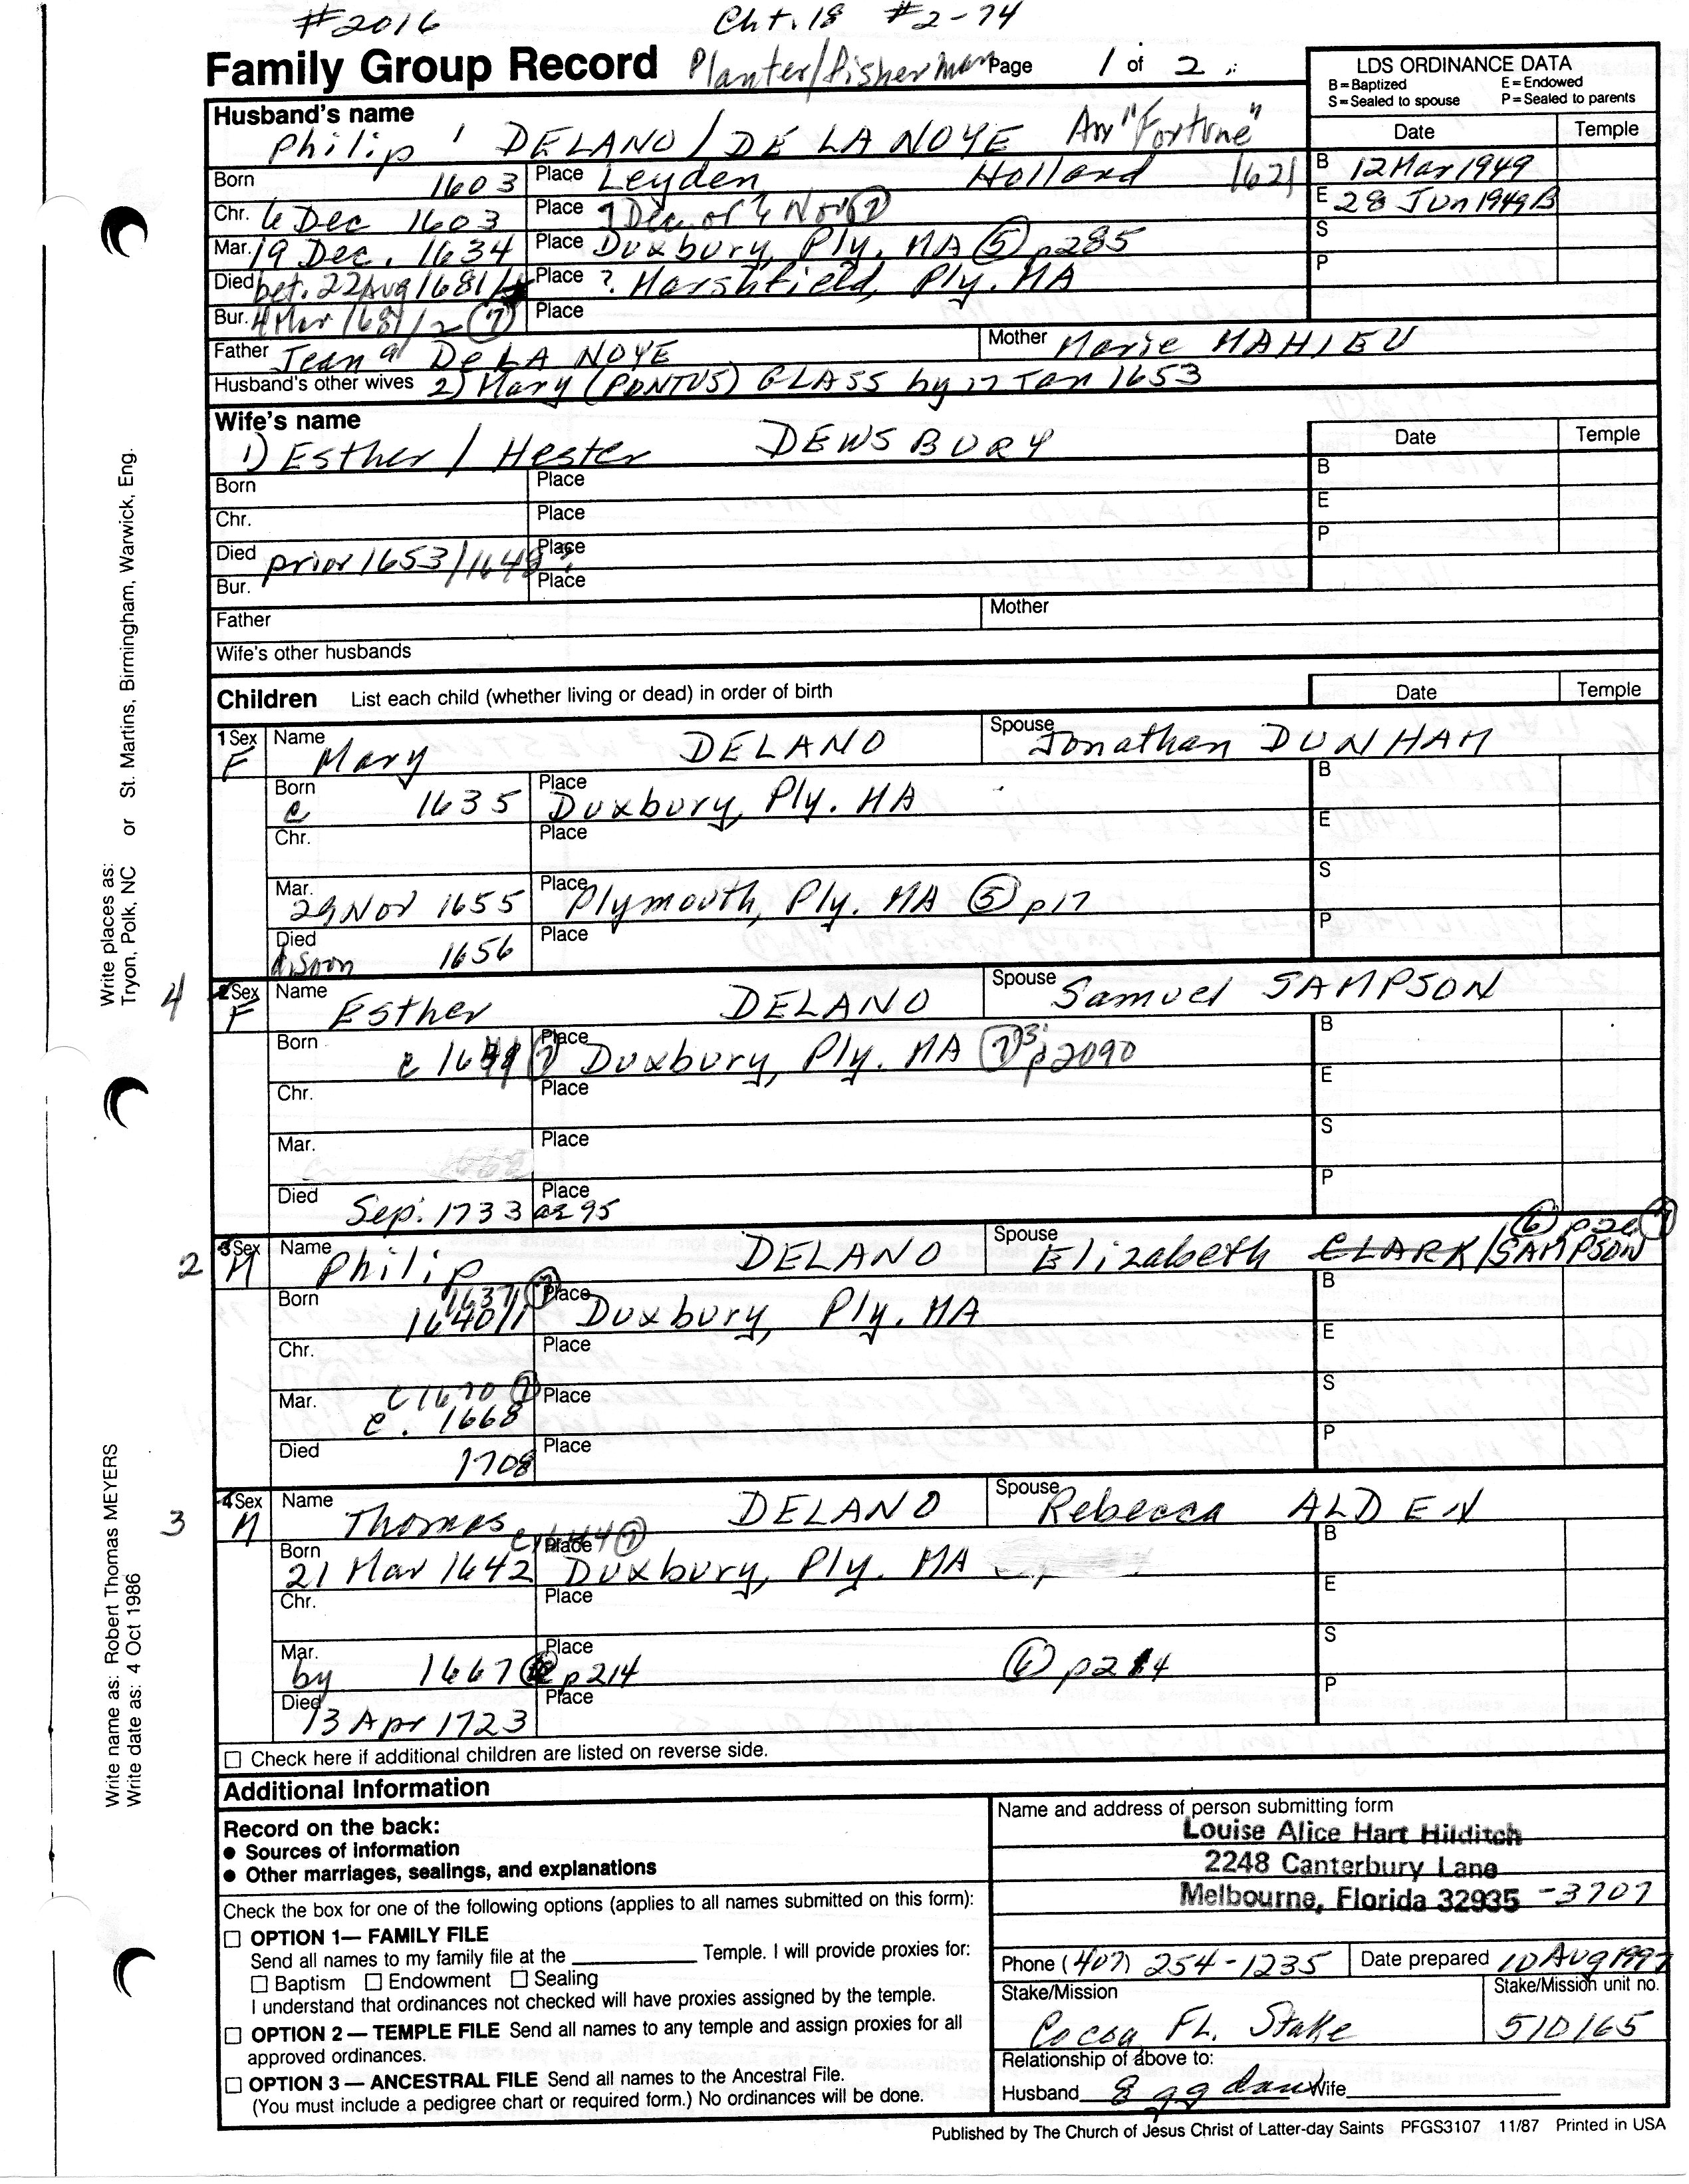 #2016 Cht. 18 #2-74
Family Group Record Planter/fisherman Page 1 of 2
LDS ORDINANCE DATA
B=Baptized E=Endowed
S=Sealed to spouse P=Sealed to parents
Husband's name
Philip 1 DELANO / DE LA NOYE Arr "Fortune"
Date Temple
Born 1603 Place Leyden, Holland 1621 B 12 Mar 1949
Chr. 6 Dec 1603 Place 7 Dec. or 6 Nov 7 E 28 Jun 1949 B
Mar. 19 Dec. 1634 Place Duxbury, Ply. MA 5 p285 S
Died bet. 22 Aug 1681/ Place ? Marshfield, Ply. MA P
Bur. 4 Mar 1681/2 7 Place
Father Jean a DE LA NOYE Mother Marie MAHIEU
Husband's other wives 2) Mary (PONTUS) GLASS by 17 Jan 1653
Wife's name
1) Esther / Hester DEWSBURY
Date Temple
Born Place B
Chr. Place E
Died prior 1653/1648? Place P
Bur. Place
Father Mother
Wife's other husbands
Children List each child (whether living or dead) in order of birth Date Temple
1 Sex F Name Mary DELANO Spouse Jonathan DUNHAM
Born c 1635 Place Duxbury, Ply. MA B
Chr. Place E
Mar. 29 Nov 1655 Place Plymouth, Ply. MA 5 p17 S
Died d. soon 1656 Place P
4 2 Sex F Name Esther DELANO Spouse Samuel SAMPSON
Born c Place Duxbury, Ply. MA 7 3 p2090 B
Chr. Place E
Mar. Place S
Died Sep. 1733 ae 95 Place P
6 p26 7
2 3 Sex M Name Philip DELANO Spouse Elizabeth CLARK/SAMPSON
Born 1637 7 1640/1 Place Duxbury, Ply. MA B
Chr. Place E
Mar. c 1670 7 c. 1668 Place S
Died 1708 Place P
3 4 Sex M Name Thomas DELANO Spouse Rebecca ALDEN
Born 21 Mar 1642 Place Duxbury, Ply. MA B
Chr. Place E
Mar. by 1667 p214 Place 6 p214 S
Died 13 Apr 1723 Place P
Check here if additional children are listed on reverse side.
Additional Information
Record on the back:
• Sources of information
• Other marriages, sealings, and explanations
Check the box for one of the following options (applies to all names submitted on this form):
OPTION 1— FAMILY FILE
Send all names to my family file at the ________ Temple. I will provide proxies for:
Baptism Endowment Sealing
I understand that ordinances not checked will have proxies assigned by the temple.
OPTION 2 — TEMPLE FILE Send all names to any temple and assign proxies for all
approved ordinances.
OPTION 3 — ANCESTRAL FILE Send all names to the Ancestral File.
(You must include a pedigree chart or required form.) No ordinances will be done.
Name and address of person submitting form
Louise Alice Hart Hilditch
2248 Canterbury Lane
Melbourne, Florida 32935 -3707
Phone (407) 254-1235 Date prepared 10 Aug 1997
Stake/Mission Stake/Mission unit no.
Cocoa FL. Stake 510165
Relationship of above to:
Husband 8 gg dau Wife
Published by The Church of Jesus Christ of Latter-day Saints PFGS3107 11/87 Printed in USA
Write places as: Tryon, Polk, NC or St. Martins, Birmingham, Warwick, Eng.
Write name as: Robert Thomas MEYERS
Write date as: 4 Oct 1986